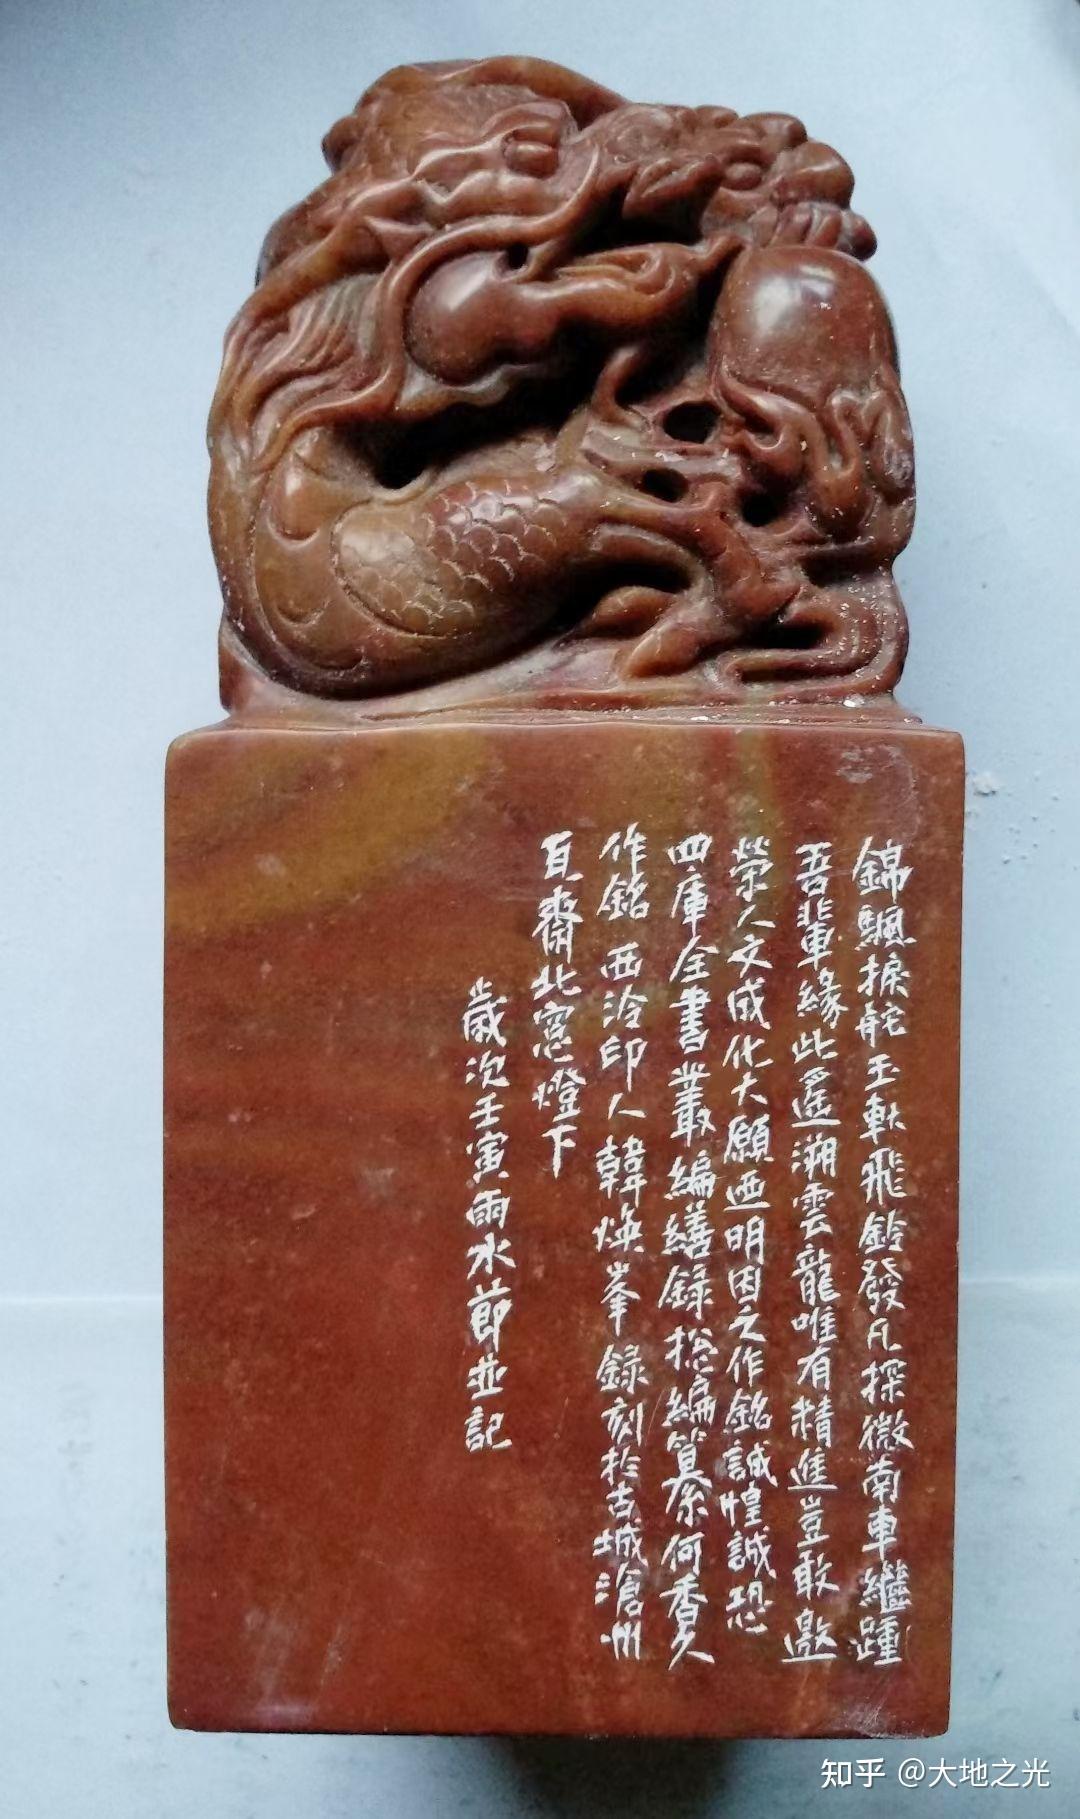 錦颿捩舵玉軑飛鈴發凡探微南車繼踵
吾輩緣此遥溯雲龍唯有精進豈敢邀
榮人文成化大願迺明因之作銘誠惶誠恐
四庫全書叢編繕録挩編纂糸何香久
作銘西泠印人韓煥峯録刻於古城滄州
瓦齋北窻燈下
歲次壬寅雨水節並記
知乎 @大地之光